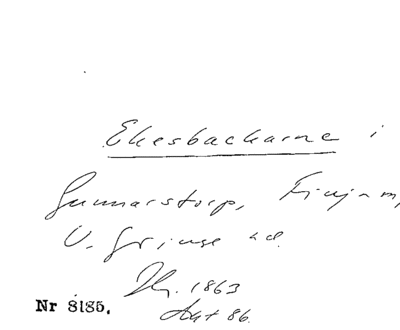 Ekesbackarne i
Gunnarstorp, Finja sn,
V. Göinge hd.
1863
Nr 8185.
Akt 86.